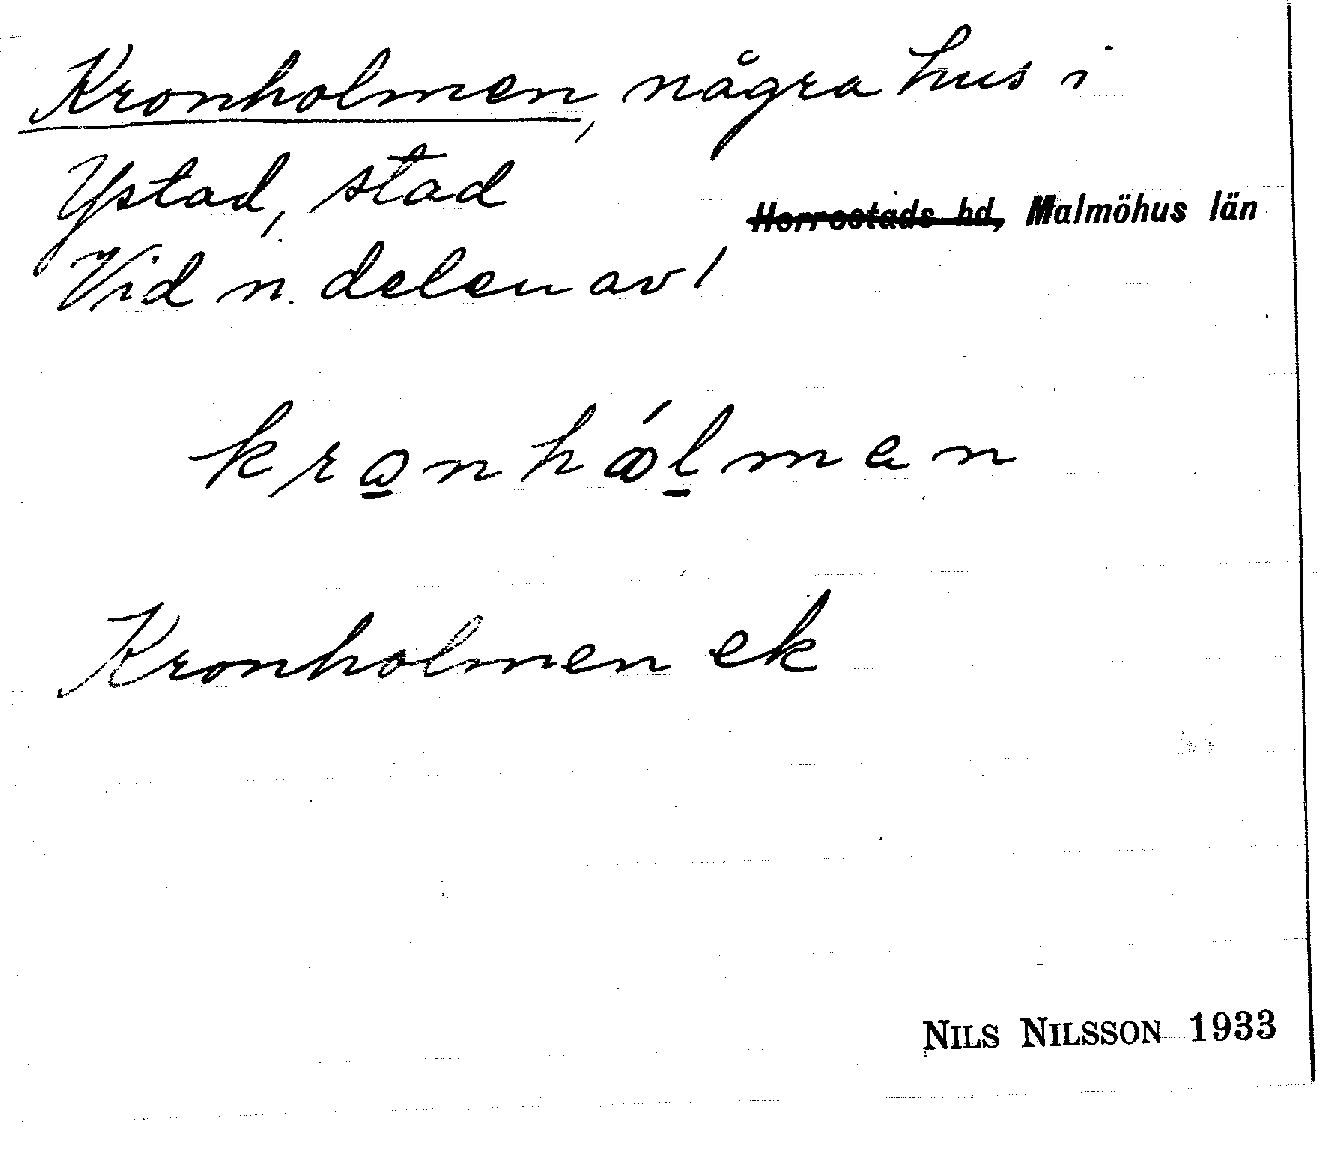 Kronholmen, några hus i
Ystad, stad
Herrestads hd, Malmöhus län
Vid n. delen av /
kro̱nhóḻman
Kronholmen ek
NILS NILSSON 1933